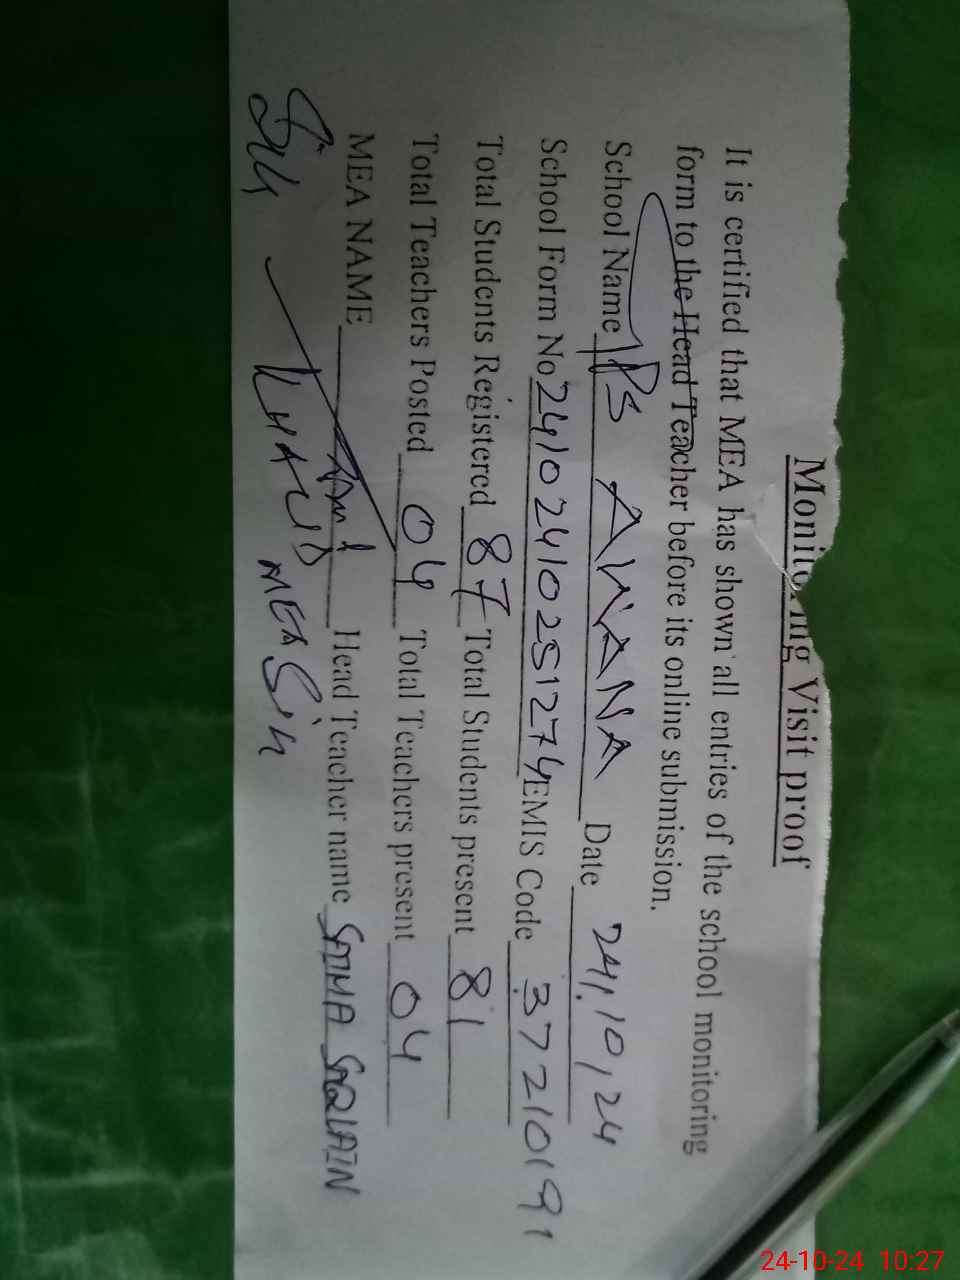 Monitoring Visit proof
It is certified that MEA has shown all entries of the school monitoring
form to the Head Teacher before its online submission.
School Name GPS AWANA Date 24,10,24
School Form No 24102410251274 EMIS Code 37210191
Total Students Registered 87 Total Students present 81
Total Teachers Posted 04 Total Teachers present 04
MEA NAME Head Teacher name SAQLAIN
KHALID MEA
24-10-24 10:27